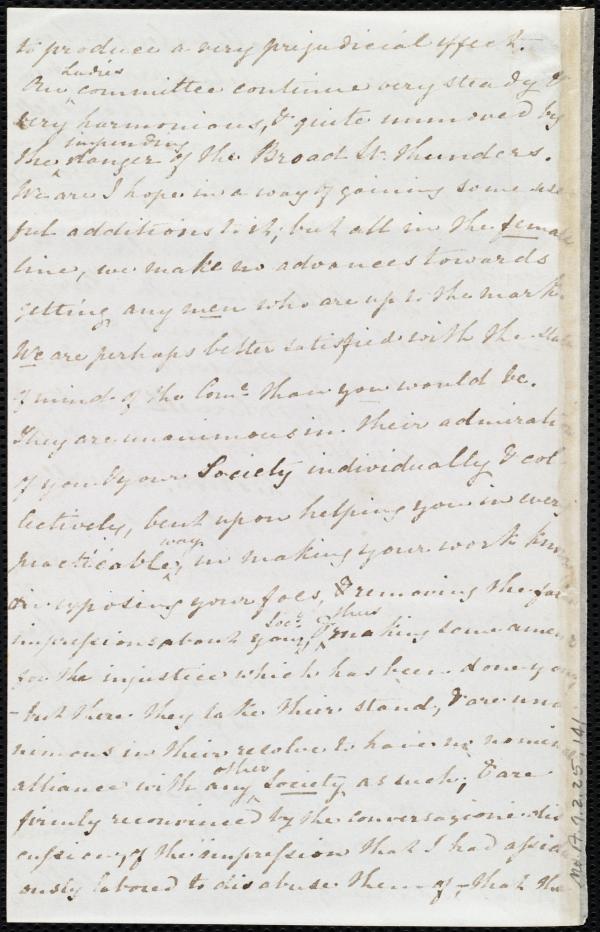 to produce a very prejudicial effect.
Our Ladies committee continue very steady &
very harmonious, & quite unmoved by
the impending danger of the Broad St. thunders.
We are I hope in a way of gaining some use
ful additions to it; but all in the female
line, we make no advances towards
getting any men who are up to the mark.
We are perhaps better satisfied with the state
of mind of the Come. than you would be.
They are unanimous in their admirati
of you & your Society individually & col
lectively, bent upon helping you in every
practicable way, in making your work known
in exposing your foes, & removing the false
impressions about your Socy. & thus making some amen
for the injustice which has been done you
- but there they take their stand, & are una
nimous in their resolve to have no nominal
alliance with any other Society as such, & are
firmly reconvinced by the conversazione dis
cussion, of the impression that I had assidu
ously labored to disabuse them of, that the
Ms. A. 9. 2. 25. 141